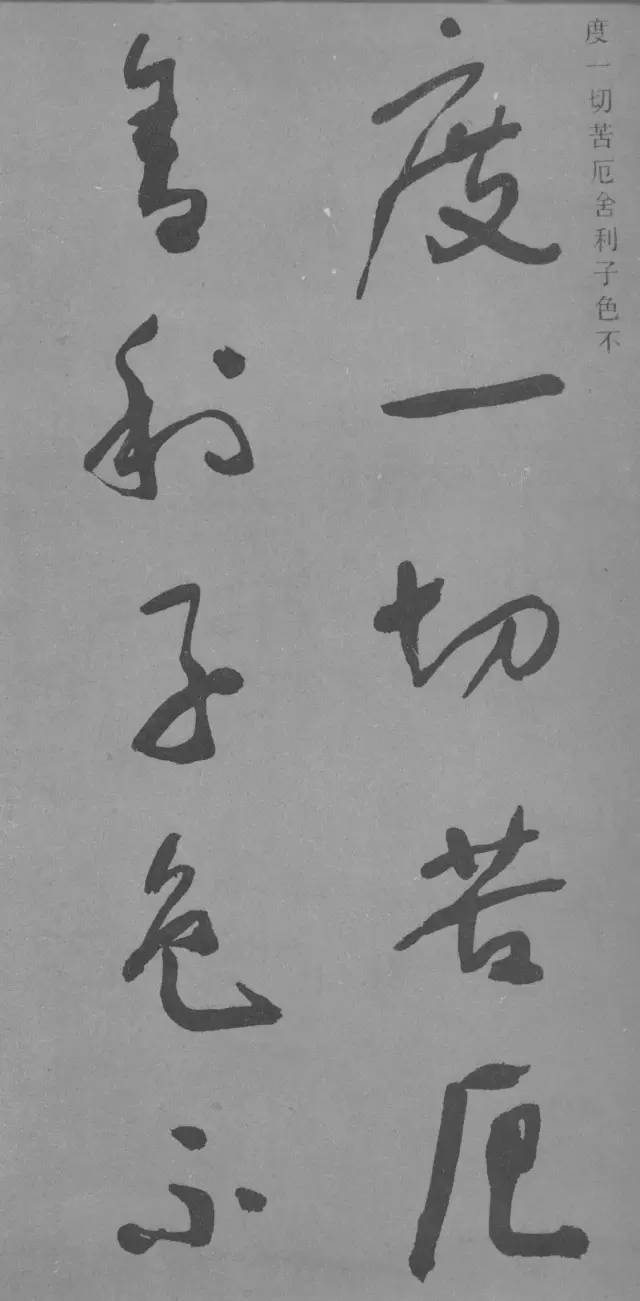 度一切苦厄舍利子色不
度一切苦厄
舍利子色不